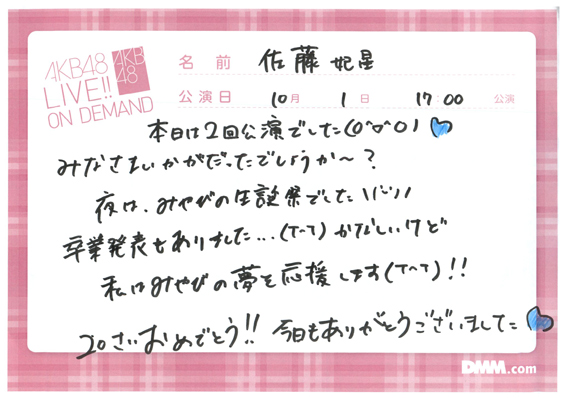 AKB48
LIVE!!
ON DEMAND
AKB
48
名前 佐藤 妃星
公演日 10月 1日 17:00 公演
本日は2回公演でした(o^o^o)
みなさまいかがだったでしょうか〜?
夜は、みやびの生誕祭でした\(^^)/
卒業発表もありました...(T^T)かなしいけど
私はみやびの夢を応援します(T^T)!!
20さいおめでとう!! 今日もありがとうございました
DMM.com